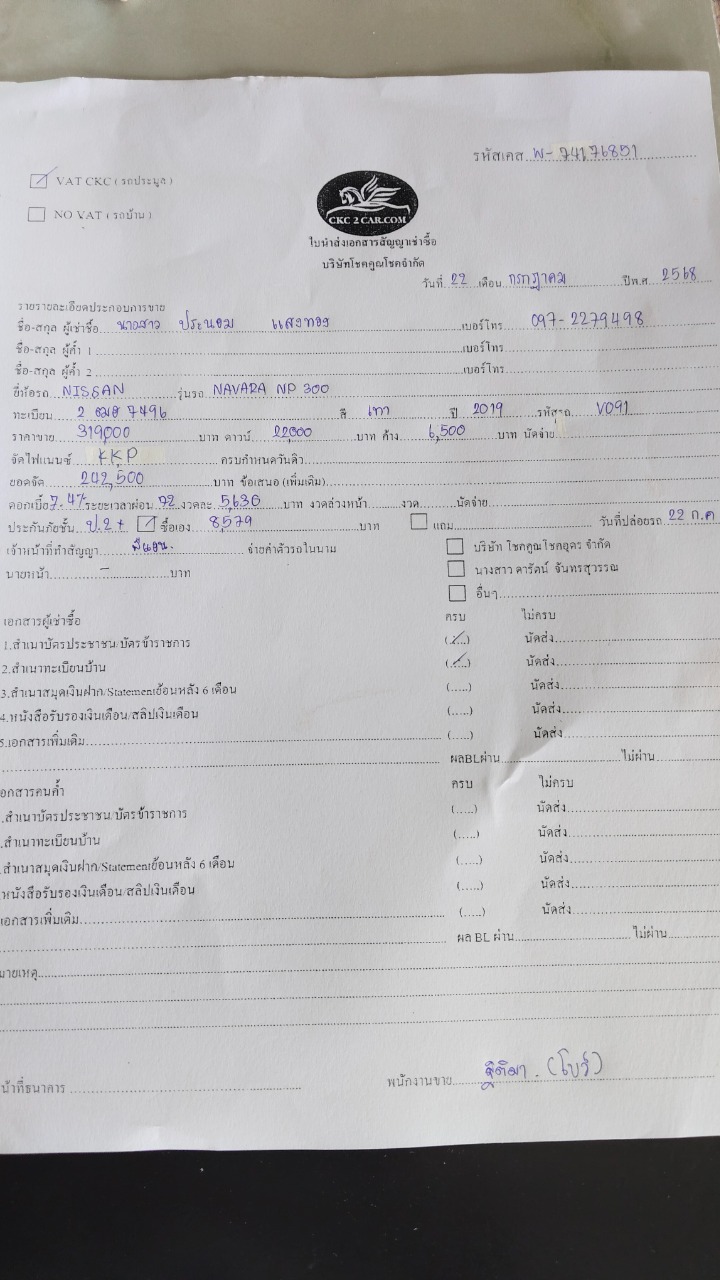 รหัสเคส W-74176851
VAT CKC ( รถประมูล )
NO VAT ( รถบ้าน )
CKC 2 CAR.COM
ใบนำส่งเอกสารสัญญาเช่าซื้อ
บริษัทโชคคูณโชคจำกัด
วันที่ 22 เดือน กรกฎาคม ปีพ.ศ. 2568
รายรายละเอียดประกอบการขาย
ชื่อ-สกุล ผู้เช่าซื้อ นางสาว ประนอม แสงทอง เบอร์โทร 097-2279498
ชื่อ-สกุล ผู้ค้ำ 1 เบอร์โทร
ชื่อ-สกุล ผู้ค้ำ 2 เบอร์โทร
ยี่ห้อรถ NISSAN รุ่นรถ NAVARA NP 300
ทะเบียน 2 7496 สี เทา ปี 2019 รหัสรถ V091
ราคาขาย 319,000 บาท ดาวน์ 22,000 บาท ค้าง 6,500 บาท นัดจ่าย
จัดไฟแนนซ์ KKP ครบกำหนดวันคิว
ยอดจัด 242,500 บาท ข้อเสนอ (เพิ่มเติม)
ดอกเบี้ย 7.47 ระยะเวลาผ่อน 72 งวดละ 5,630 บาท งวดล่วงหน้า งวด นัดจ่าย
ประกันภัยชั้น ป.2+ ซื้อเอง 8,579 บาท แถม วันที่ปล่อยรถ 22 ก.ค
เจ้าหน้าที่ทำสัญญา จ่ายค่าตัวรถในนาม บริษัท โชคคูณโชคอุดร จำกัด
นายหน้า - บาท นางสาว ดารัตน์ จันทรสุวรรณ
อื่นๆ
เอกสารผู้เช่าซื้อ ครบ ไม่ครบ
1.สำเนาบัตรประชาชน/บัตรข้าราชการ (/) นัดส่ง
2.สำเนาทะเบียนบ้าน (/) นัดส่ง
3.สำเนาสมุดเงินฝาก/Statementย้อนหลัง 6 เดือน (.....) นัดส่ง
4.หนังสือรับรองเงินเดือน/สลิปเงินเดือน (.....) นัดส่ง
5.เอกสารเพิ่มเติม (.....) นัดส่ง
ผลBLผ่าน ไม่ผ่าน
อกสารคนค้ำ ครบ ไม่ครบ
.สำเนาบัตรประชาชน/บัตรข้าราชการ (.....) นัดส่ง
.สำเนาทะเบียนบ้าน (.....) นัดส่ง
.สำเนาสมุดเงินฝาก/Statementย้อนหลัง 6 เดือน (.....) นัดส่ง
หนังสือรับรองเงินเดือน/สลิปเงินเดือน (.....) นัดส่ง
เอกสารเพิ่มเติม (.....) นัดส่ง
ผล BL ผ่าน ไม่ผ่าน
มายเหตุ
น้าที่ธนาคาร พนักงานขาย ฐิติมา. (โบว์)